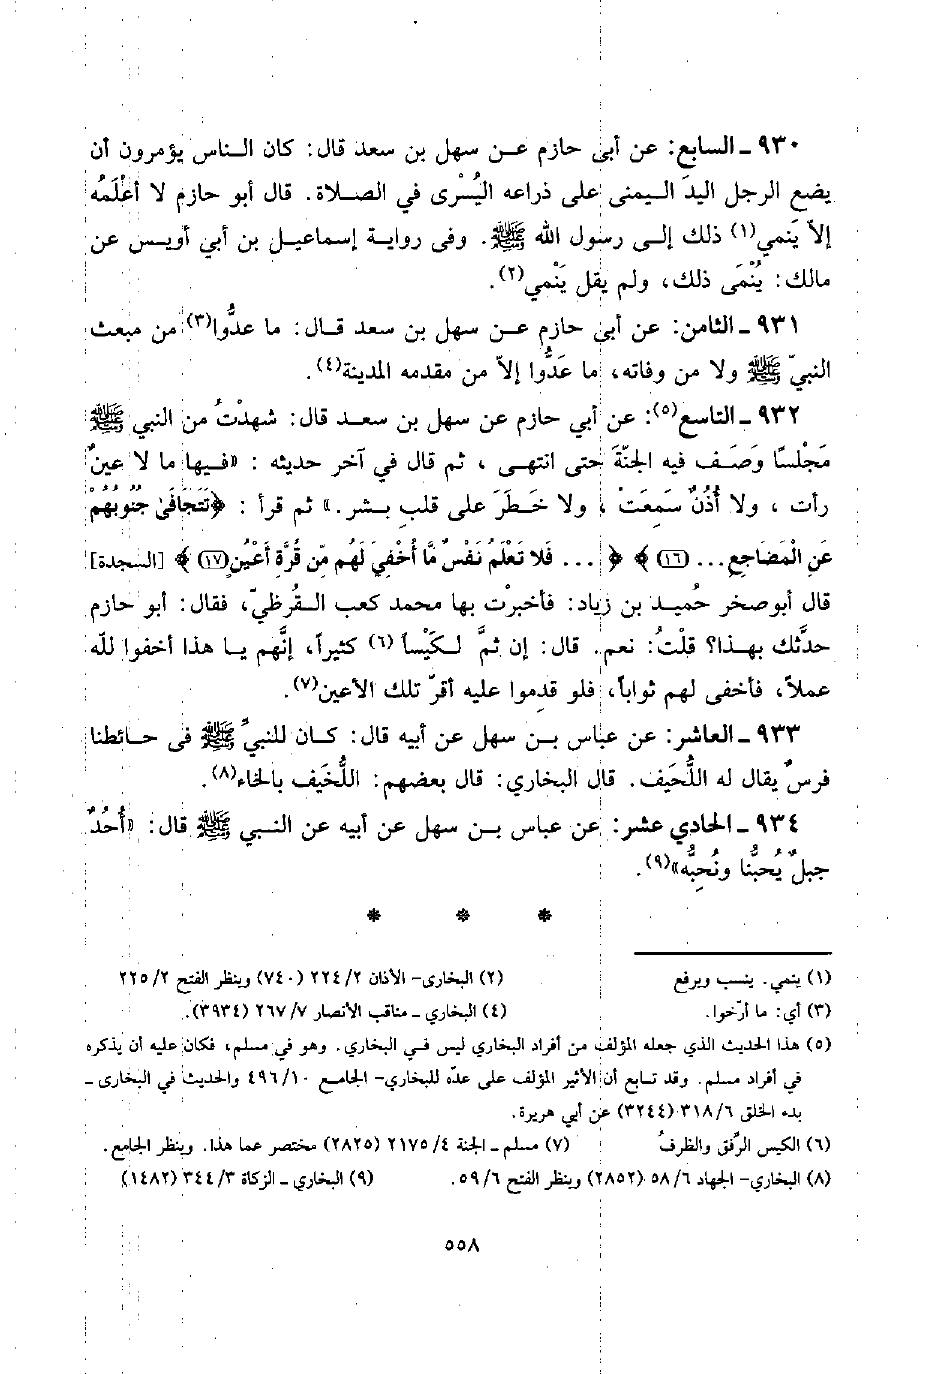 ٩٣٠ ـ السابع: عن أبي حازم عـن سهل بن سعد قال: كان النـاس يؤمرون أن
يضع الرجل اليدَ الـيمنى على ذراعه اليُسْرى في الصـلاة. قال أبو حازم لا أعْلَمُه
إلاّ يَنمي(١) ذلك إلـى رسول الله ﷺ. وفى روايـة إسماعيـل بن أبي أويـس عن
مالك: يُنْمَى ذلك، ولم يقل يَنْمي(٢).
٩٣١ ـ الثامن: عن أبي حازم عـن سهل بن سعد قـال: ما عدُّوا(٣) من مبعث
النبيّ ﷺ ولا من وفاته، ما عَدُّوا إلاّ من مقدمه المدينة(٤).
٩٣٢ ـ التاسع(٥): عن أبي حازم عن سهل بن سـعد قال: شهدْتُ من النبي ﷺ
مَجْلسًا وَصَـف فيه الجنّةَ حتى انتهـى ، ثم قال في آخر حديثه : «فـيها ما لا عينٌ
رأت ، ولا أُذُنٌ سَمِعَتْ ، ولا خَـطَرَ على قلبِ بـشر.» ثم قرأ : ﴿تَتَجَافَىٰ جُنُوبُهُمْ
عَنِ الْمَضَاجِعِ... (١٦)﴾ ﴿... فَلا تَعْلَمُ نَفْسٌ مَّا أُخْفِيَ لَهُم مِّن قُرَّةِ أَعْيُنٍ(١٧)﴾ [السجدة]
قال أبوصخر حُميـد بن زياد: فأخبرْت بها محمد كعب الـقُرظيّ، فقال: أبو حازم
حدَّثك بهـذا؟ قلْتُ: نعم. قال: إن ثمَّ لـكَيْساً (٦) كثيراً، إنَّهم يـا هذا أخفوا للّه
عملاً، فأخفى لهم ثواباً، فلو قدموا عليه أقرّ تلك الأعين(٧).
٩٣٣ ـ العاشر: عن عباس بـن سهل عن أبيه قال: كـان للنبيِّ ﷺ فى حـائطنا
فرسٌ يقال له اللُّحَيف. قال البخاري: قال بعضهم: اللُّخَيف بالخاء(٨).
٩٣٤ ـ الحادي عشر: عن عباس بـن سهل عن أبيه عن النـبي ﷺ قال: «أُحُدٌ
جبلٌ يُحبُّنا ونُحِبُّه»(٩).
* * *
(١) ينمي. ينسب ويرفع (٢) البخاري- الأذان ٢٢٤/٢ (٧٤٠) وينظر الفتح ٢٢٥/٢
(٣) أي: ما أرّخوا. (٤) البخاري ـ مناقب الأنصار ٢٦٧/٧ (٣٩٣٤).
(٥) هذا الحديث الذي جعله المؤلف من أفراد البخاري ليس فـي البخاري. وهو في مسلم، فكان عليه أن يذكره
في أفراد مسلم. وقد تـابع ابن الأثير المؤلف على عدّه للبخاري- الجامـع ٤٩٦/١٠ والحديث في البخارى ـ
بدء الخلق ٣١٨/٦ (٣٢٤٤) عن أبي هريرة.
(٦) الكيس الرِّفق والظرفُ (٧) مسلم ـ الجنة ٢١٧٥/٤ (٢٨٢٥) مختصر عما هذا. وينظر الجامع.
(٨) البخاري- الجهاد ٥٨/٦ (٢٨٥٢) وينظر الفتح ٥٩/٦. (٩) البخاري ـ الزكاة ٣٤٤/٣ (١٤٨٢)
٥٥٨